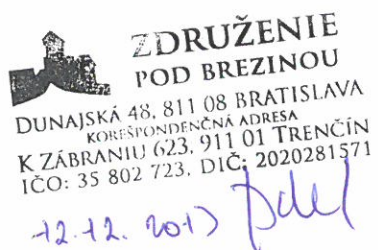 ZDRUŽENIE
POD BREZINOU
DUNAJSKÁ 48, 811 08 BRATISLAVA
KOREŠPONDENČNÁ ADRESA
K ZÁBRANIU 623, 911 01 TRENČÍN
IČO: 35 802 723, DIČ: 2020281571
12.12. 2017